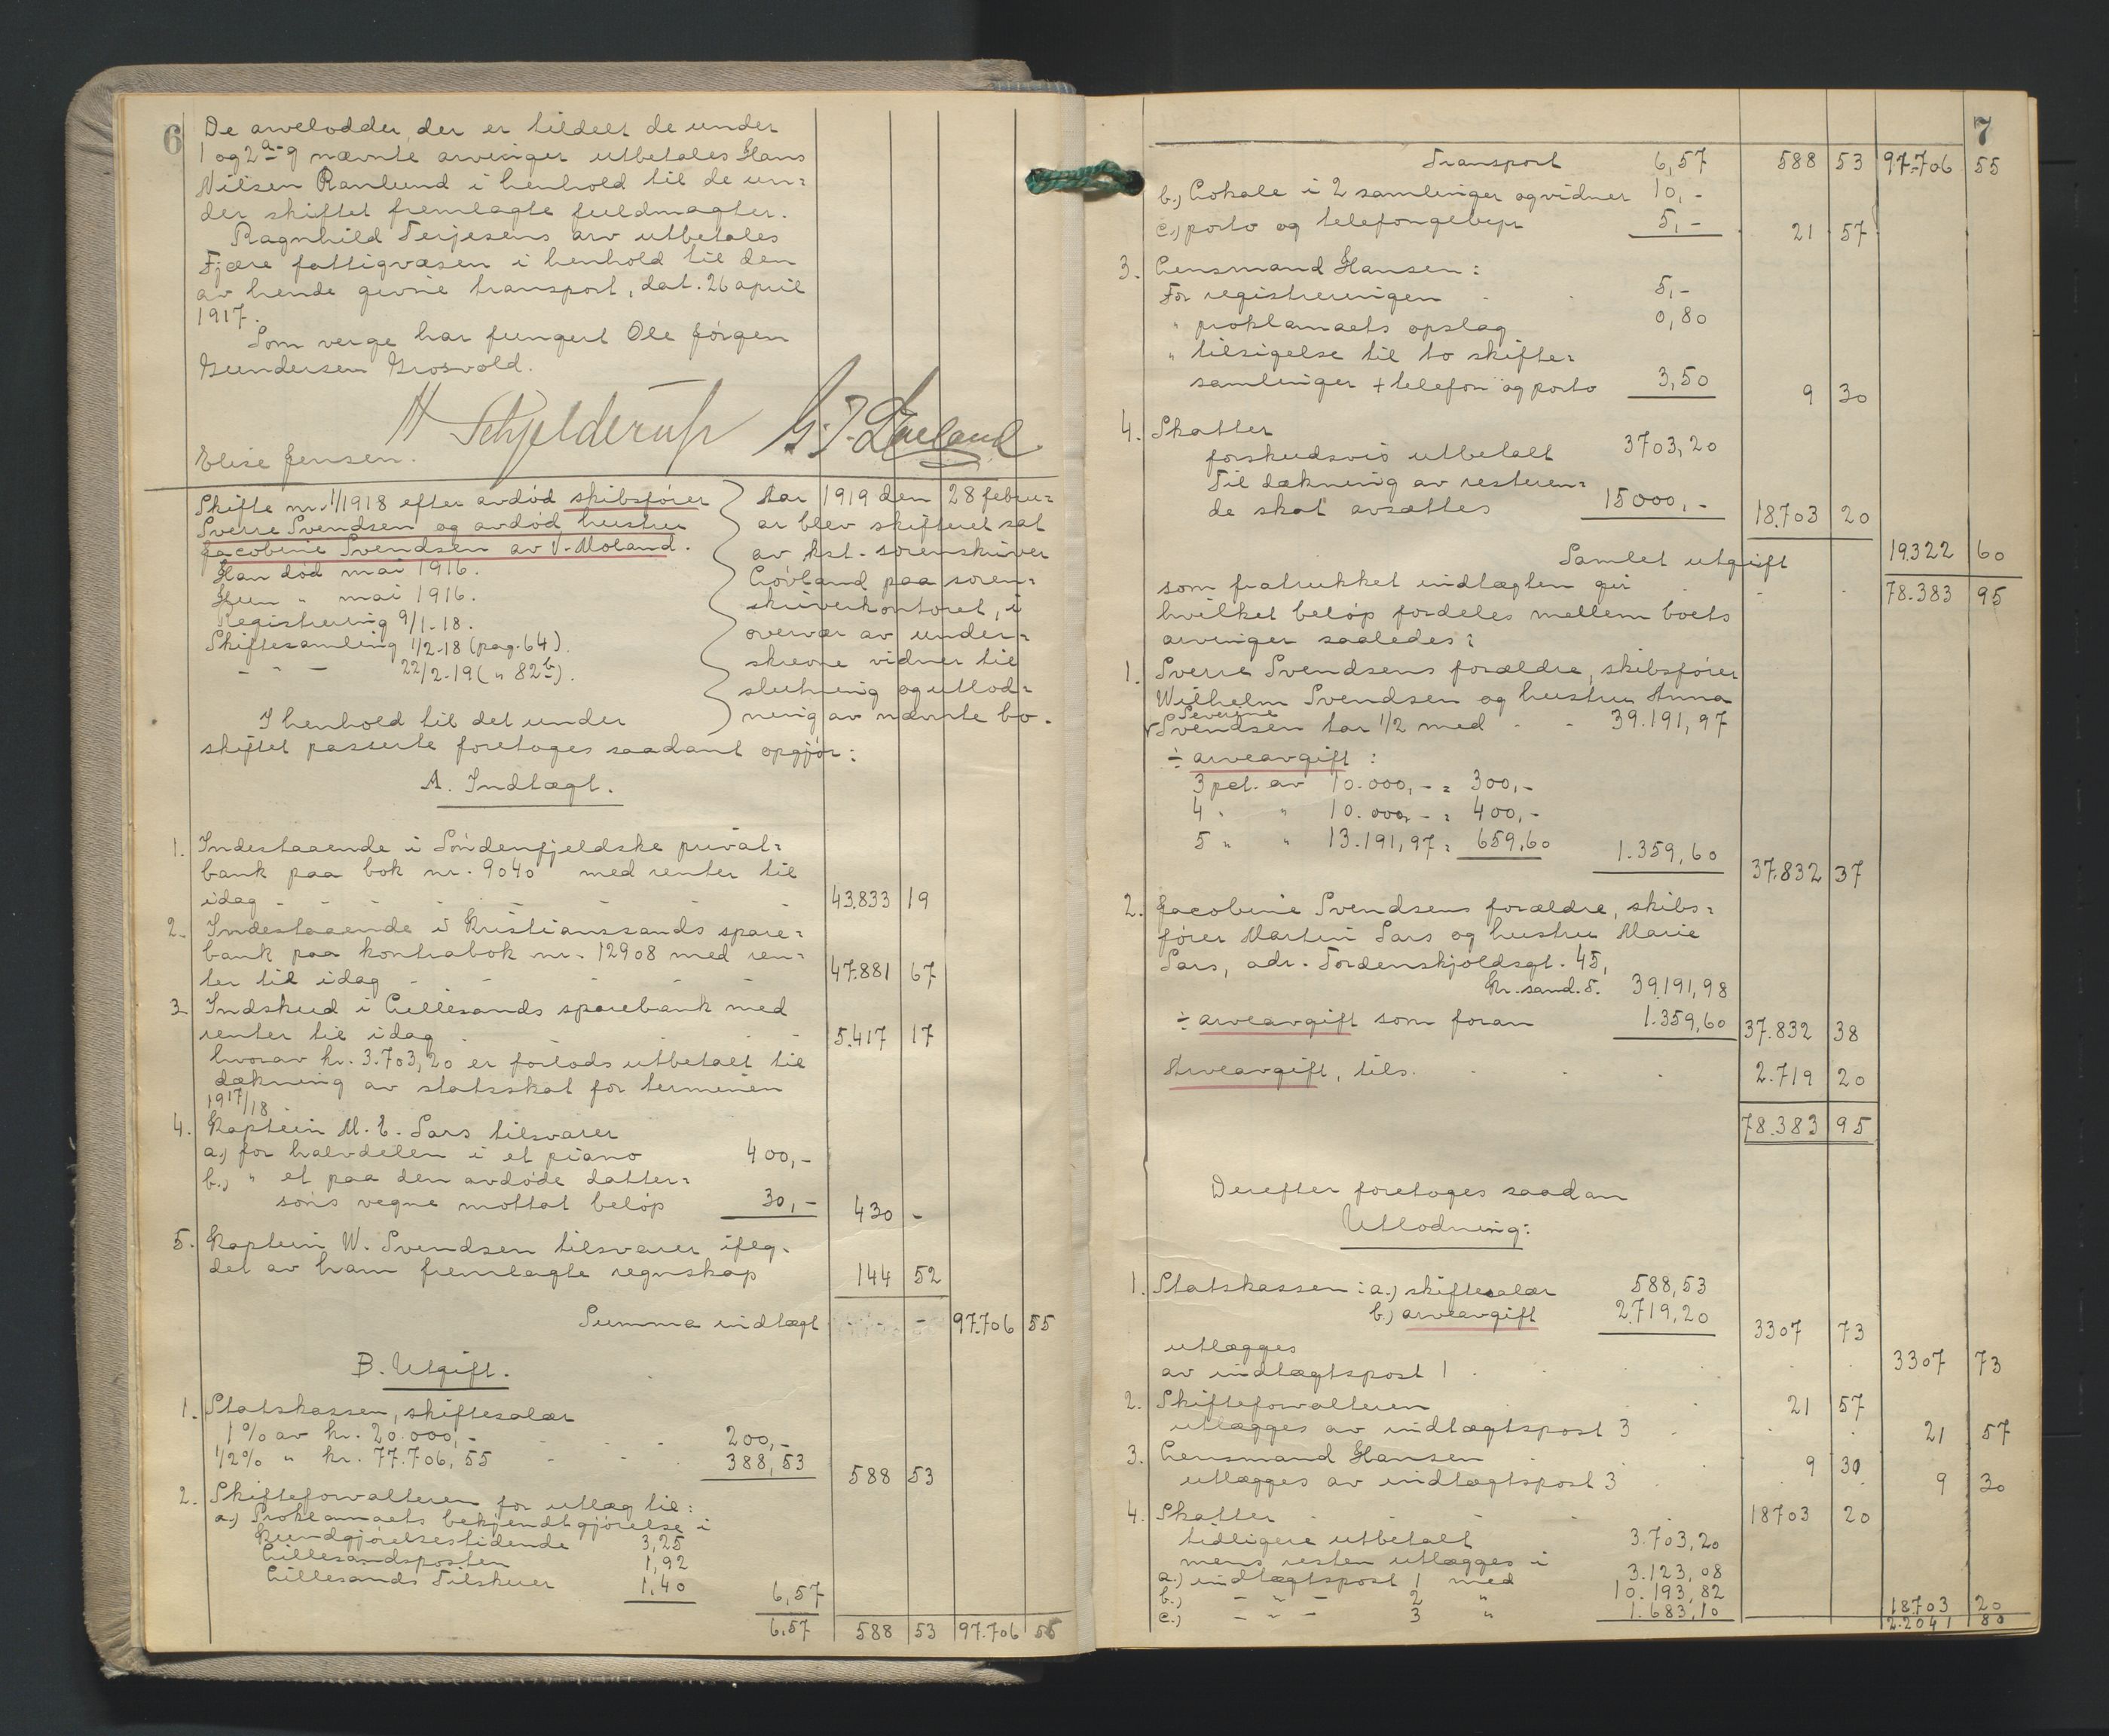 6
De arvelodder, der er tildelt de under
1 og 2 a-g nævnte arvinger utbetales Hans
Nilsen Ranlund i henhold til de un=
der skiftet fremlagte fuldmagter.
Ragnhild Terjesens arv utbetales
Fjære fattigvæsen i henhold til den
av hende givne transport, dat. 26 april
1917.
Som verge har fungert Ole Jörgen
Gundersen Grosvold.
H Schjelderup
Elise Jensen.
Skifte nr. 1/1918 efter avdöd skibsförer
Sverre Svendsen og avdöd hustru
Jacobine Svendsen av V. Moland.
Han död mai 1916.
Hun " mai 1916.
Registrering 9/1-18.
Skiftesamling 1/2-18 (pag. 64).
- " - 22/2-19 ( " 82 b).
Aar 1919 den 28 febru=
ar blev skifteret sat
av kst. sorenskriver
Lövland paa soren=
skriverkontoret, i
overvær av under=
skrevne vidner til
slutning og utlod=
ning av nævnte bo.
I henhold til det under
skiftet passerte foretages saadant opgjör:
A. Indtægt.
1. Indestaaende i Söndenfjeldske privat=
bank paa bok nr. 9040 med renter til
idag - - - - 43.833 19
2. Indestaaende i Kristianssands spare=
bank paa kontrabok nr. 12908 med ren=
ter til idag - - - 47.881 67
3. Indskud i Lillesands sparebank med
renter til idag - - 5.417 17
hvorav kr. 3.703,20 er forlods utbetalt til
dækning av statsskat for terminen
1917/18.
4. Kaptein M. E. Lars tilsvarer
a.) for halvdelen i et piano 400,-
b.) " et paa den avdöde datter=
söns vegne mottat belöp 30,- 430 -
5. Kaptein W. Svendsen tilsvarer iflg.
det av ham fremlagte regnskap 144 52
Summa indtægt 97.706 55
B. Utgift.
1. Statskassen, skiftesalær
1 % av kr. 20.000,- - - - 200,-
1/2 % " kr. 77.706,55 - - 388,53 588 53
2. Skifteforvalteren for utlæg til:
a.) Proklamaets bekjendtgjörelse i
Kundgjörelsestidende 3,25
Lillesandsposten 1,92
Lillesands Tilskuer 1,40 6,57
6,57 588 53 97.706 55
7
Transport 6,57 588 53 97.706 55
b.) Lokale i 2 samlinger og vidner 10,-
c.) porto og telefongebyr 5,- 21 57
3. Lensmand Hansen:
For registreringen 5,-
" proklamaets opslag 0,80
" tilsigelse til to skifte=
samlinger + telefon og porto 3,50 9 30
4. Skatter
forskudsvis utbetalt 3703,20
Til dækning av resteren=
de skat avsættes 15000,- 18.703 20
Samlet utgift 19.322 60
som fratrukket indtægten gir - - 78.383 95
hvilket belöp fordeles mellem boets
arvinger saaledes:
1. Sverre Svendsens forældre, skibsförer
Wilhelm Svendsen og hustru Anna
Severine
Svendsen tar 1/2 med - - 39.191,97
÷ arveavgift :
3 pct. av 10.000,- = 300,-
4 " " 10.000,- = 400,-
5 " " 13.191,97 = 659,60 1.359,60 37.832 37
2. Jacobine Svendsens forældre, skibs=
förer Martin Lars og hustru Marie
Lars, adr. Tordenskjoldsgt. 45,
Kr.sand. S. 39.191,98
÷ arveavgift som foran 1.359,60 37.832 38
Arveavgift, tils. - - - 2.719 20
78.383 95
Derefter foretages saadan
Utlodning:
1. Statskassen : a.) skiftesalær 588,53
b.) arveavgift 2.719,20 3307 73
utlægges
av indtægtspost 1 - - - 3307 73
2. Skifteforvalteren - - 21 57
utlægges av indtægtspost 3 - - 21 57
3. Lensmand Hansen - - 9 30
utlægges av indtægtspost 3 - - 9 30
4. Skatter - - - 18703 20
tidligere utbetalt 3.703,20
mens resten utlægges i
a.) indtægtspost 1 med 3.123,08
b.) - " - 2 " 10.193,82
c.) - " - 3 " 1.683,10 18703 20
2.2041 80